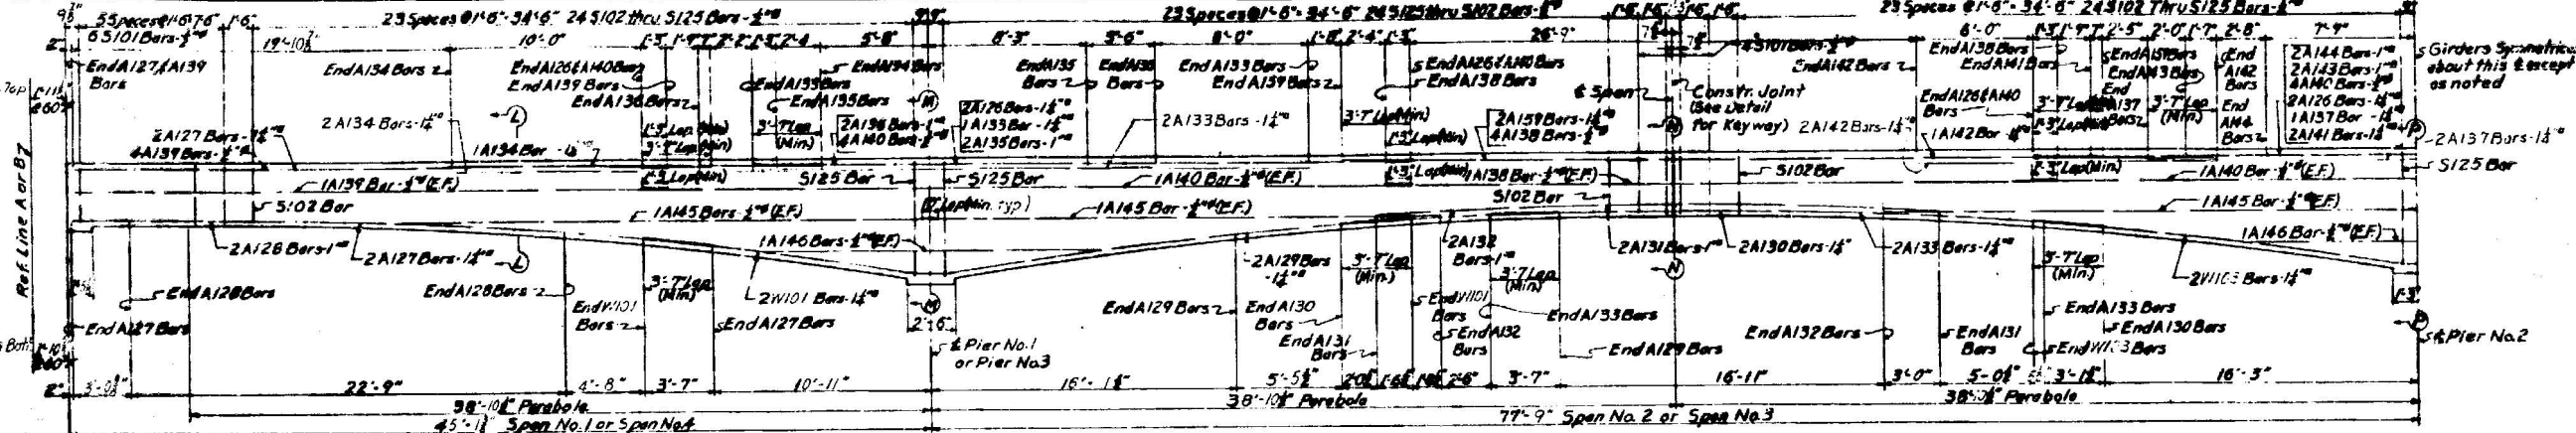 5 Spaces @ 1'-6" = 7'-6" 1'-6" 23 Spaces @ 1'-6" = 34'-6" 24 S102 thru S125 Bars-½"ᵠ 9" 9" 23 Spaces @ 1'-6" = 34'-6" 24 S125 thru S102 Bars-½"ᵠ 1'-6" 1'-6" 1'-6" 1'-6" 23 Spaces @ 1'-6" = 34'-6" 24 S102 Thru S125 Bars-½"ᵠ 9"
6 S101 Bars-½"ᵠ
2" 10'-0" 1'-3" 2'-2" 1'-3" 2'-4" 5'-8" 8'-3" 3'-6" 8'-0" 1'-8" 2'-4" 1'-3" 26'-9" 6'-0" 1'-3" 2'-5" 2'-0" 1'-7" 2'-8" 7'-9"
4 S101 Bars-½"ᵠ
End A127 & A139 Bars
End A134 Bars
End A126 & A140 Bars
End A139 Bars
End A136 Bars
End A133 Bars
End A135 Bars
End A134 Bars
End A135 Bars
End A136 Bars
End A133 Bars
End A139 Bars
End A126 & A140 Bars
End A138 Bars
End A142 Bars
End A138 Bars
End A141 Bars
End A126 & A140 Bars
End A137 Bars
End A143 Bars
End A142 Bars
End A144 Bars
2A144 Bars-1"ᵠ
2A143 Bars-1"ᵠ
4A140 Bars-½"ᵠ
2A126 Bars-1¼"ᵠ
1A137 Bar-1¼"ᵠ
2A141 Bars-1¼"ᵠ
Girders Symmetrical about this ℄ except as noted
Top
Ref. Line A or B7
2A127 Bars-1¼"ᵠ
4A139 Bars-½"ᵠ
2A134 Bars-1¼"ᵠ
L
1A134 Bar
1'-3" Lap (Min)
3'-7" Lap (Min)
3'-7" Lap (Min.)
2A136 Bars-1"ᵠ
4A140 Bars-½"ᵠ
M
2A126 Bars-1¼"ᵠ
1A133 Bar-1¼"ᵠ
2A135 Bars-1"ᵠ
2A133 Bars-1¼"ᵠ
3'-7" Lap (Min)
1'-3" Lap (Min)
2A139 Bars-1¼"ᵠ
4A138 Bars-½"ᵠ
℄ Span
Constr. Joint
(See Detail
for Keyway)
N
2A142 Bars-1¼"ᵠ
1A142 Bar-1¼"ᵠ
3'-7" Lap (Min)
1'-3" Lap (Min)
3'-7" Lap (Min.)
P
2A137 Bars-1¼"ᵠ
S125 Bar
1A139 Bar-½"ᵠ (E.F.)
1'-3" Lap (Min)
S125 Bar
S125 Bar
1A140 Bar-½"ᵠ (E.F.)
1'-3" Lap (Min)
1A138 Bar-½"ᵠ (E.F.)
S102 Bar
1'-3" Lap (Min)
1A140 Bar-½"ᵠ (E.F.)
S102 Bar
1A145 Bars-½"ᵠ (E.F.)
Lap (Min. typ.)
1A145 Bar-½"ᵠ (E.F.)
S102 Bar
1A145 Bar-½"ᵠ (E.F.)
2A128 Bars-1"ᵠ
2A127 Bars-1¼"ᵠ
L
1A146 Bars-½"ᵠ (E.F.)
2A129 Bars-1¼"ᵠ
2A132 Bars-1"ᵠ
2A131 Bars-1"ᵠ
2A130 Bars-1¼"ᵠ
2A133 Bars-1¼"ᵠ
1A146 Bar-½"ᵠ (E.F.)
End A128 Bars
End A128 Bars
3'-7" Lap (Min.)
2W101 Bars-1¼"ᵠ
M
3'-7" Lap (Min.)
3'-7" Lap (Min.)
N
3'-7" Lap (Min.)
2W103 Bars-1¼"ᵠ
1'-3"
End A127 Bars
End W101 Bars
End A127 Bars
2'-6"
End A129 Bars
End A130 Bars
End A131 Bars
End W101 Bars
End A132 Bars
End A133 Bars
End A129 Bars
End A132 Bars
End A131 Bars
End A133 Bars
End A130 Bars
End W103 Bars
P
℄ Pier No. 1
or Pier No. 3
℄ Pier No. 2
2" 22'-9" 4'-8" 3'-7" 10'-11" 16'-1½" 5'-5½" 2'-6" 3'-7" 16'-11" 3'-0" 16'-3"
38'-10½" Parabola 38'-10½" Parabola 38'-10½" Parabola
Span No. 1 or Span No. 4 77'-9" Span No. 2 or Span No. 3